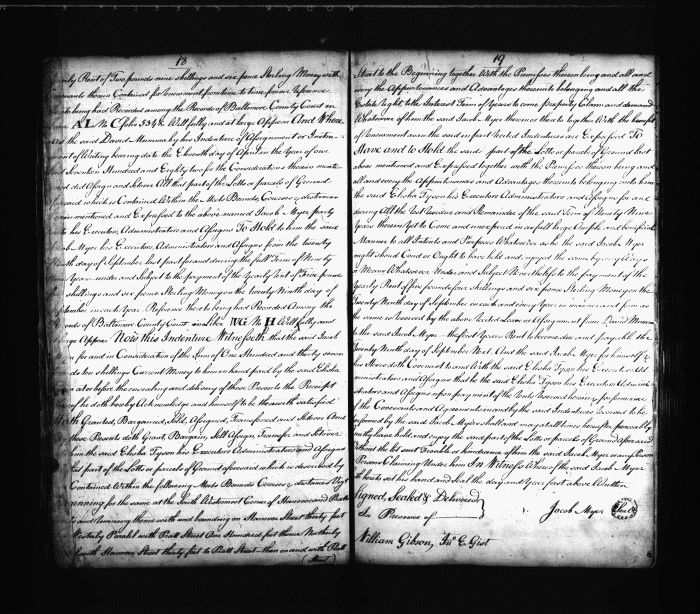 18
Rent of Two pounds nine shillings and six pence Sterling Money with
Covenants therein Contained for Covenant from time to time for
to being had Recorded among the Records of Baltimore County Court in
A L N C folio 534 &c Will fully and at large Appear And Where
the said David Mumma by his Indenture of Assignment or Instru-
ment of Writing bearing date the Eleventh day of April in the Year of our
Seventeen Hundred and Eighty two for the Considerations therein ment-
ioned did Assign and Setover All that part of the Lotts or parcels of Ground
aforesaid which is Contained Within the Meets Bounds, Courses & distances
therein mentioned and Expressed to the above named Jacob Myer party
to his Executors, Administrators and Assigns To Hold to him the said
Jacob Myer his Executors, Administrators and Assigns from the twenty
Ninth day of September last past for and during the full Term of Ninety
Years under and Subject to the payment of the Yearly Rent of Five pounds
shillings and six pence Sterling Money on the twenty Ninth day of
September in each Year Reference thereto being had Recorded Among the
Records of Baltimore County Court in Liber WG No H Will fully and
large Appear Now this Indenture Witnesseth that the said Jacob
Myer for and in Consideration of the Sum of One Hundred and thirty seven
pounds ten shillings Current Money to him in hand paid by the said Elisha
Tyson at or before the ensealing and delivery of these Presents the Receipt
whereof he doth hereby Acknowledge and himself to be therewith satisfied
Hath Granted, Bargained, Sold, Assigned, Transferred and Setover And
by these Presents doth Grant, Bargain, Sell Assign Transfer and Setover
unto him the said Elisha Tyson his Executors Administrators and Assigns
All that part of the Lotts or parcels of Ground aforesaid which is described by
Contained Within the following Meets Bounds Courses & distances Viz
Beginning for the same at the South Westernmost Corner of Hanover and Pratt
Streets and running thence with and bounding on Hanover Street thirty feet
Westerly Parallel with Pratt Street One Hundred feet thence Northerly
with Hanover Street thirty feet to Pratt Street then on and with Pratt
(Street)
19
Street to the Beginning together With the Premisses thereon being and all and
every the Appurtenances and Advantages thereunto belonging and all the
Estate Right, title Interest Term of Years to come, property Claim and demand
Whatsoever of him the said Jacob Myer thereon thereto together With the benefit
of Covenants as in the said in part Recited Indentures are Expressed To
Have and to Hold the said part of the Lotts or parcels of Ground last
above mentioned and Expressed together with the Premisses thereon being and
all and every the Appurtenances and Advantages thereunto belonging unto him
the said Elisha Tyson his Executors Administrators and Assigns for and
during All the Rest Residue and Remainder of the said Term of Ninety Nine
Years therein Yet to Come and unexpired in as full large Ample and beneficial
Manner to all Intents and Purposes Whatsoever as he the said Jacob Myer
might should Could or Ought to have held and enjoyed the same by any Ways
or Means Whatsoever Under and Subject Nevertheless to the payment of the
Yearly Rent of five pounds four shillings and six pence Sterling Money on the
Twenty Ninth day of September in each and every Year in manner and form as
the same is reserved by the above recited Lease or Assignment from David Mumma
to the said Jacob Myer the first Years Rent to become due and payable the
Twenty Ninth day of September Next And the said Jacob Myer for himself &
his Heirs doth Covenant to and With the said Elisha Tyson his Executors Ad-
ministrators and Assigns that he the said Elisha Tyson his Executors Adminis-
trators and Assigns upon payment of the Rents Reserved herein & performance
of the Covenants and Agreements in and by the said Indentures Covered to be
performed by the said Jacob Myer shall and may at all times hereafter peaceably
and quietly have hold and enjoy the said part of the Lotts or parcels of Ground aforesaid
without the let suit Trouble or hinderance of him the said Jacob Myer or any Person
or Persons Claiming Under him In Witness Whereof the said Jacob Myer
hath hereto set his hand and Seal the day and Year first above Written
Signed, Sealed & Delivered
In Presence of
Jacob Myer (Seal)
William Gibson, Jno E. Gist